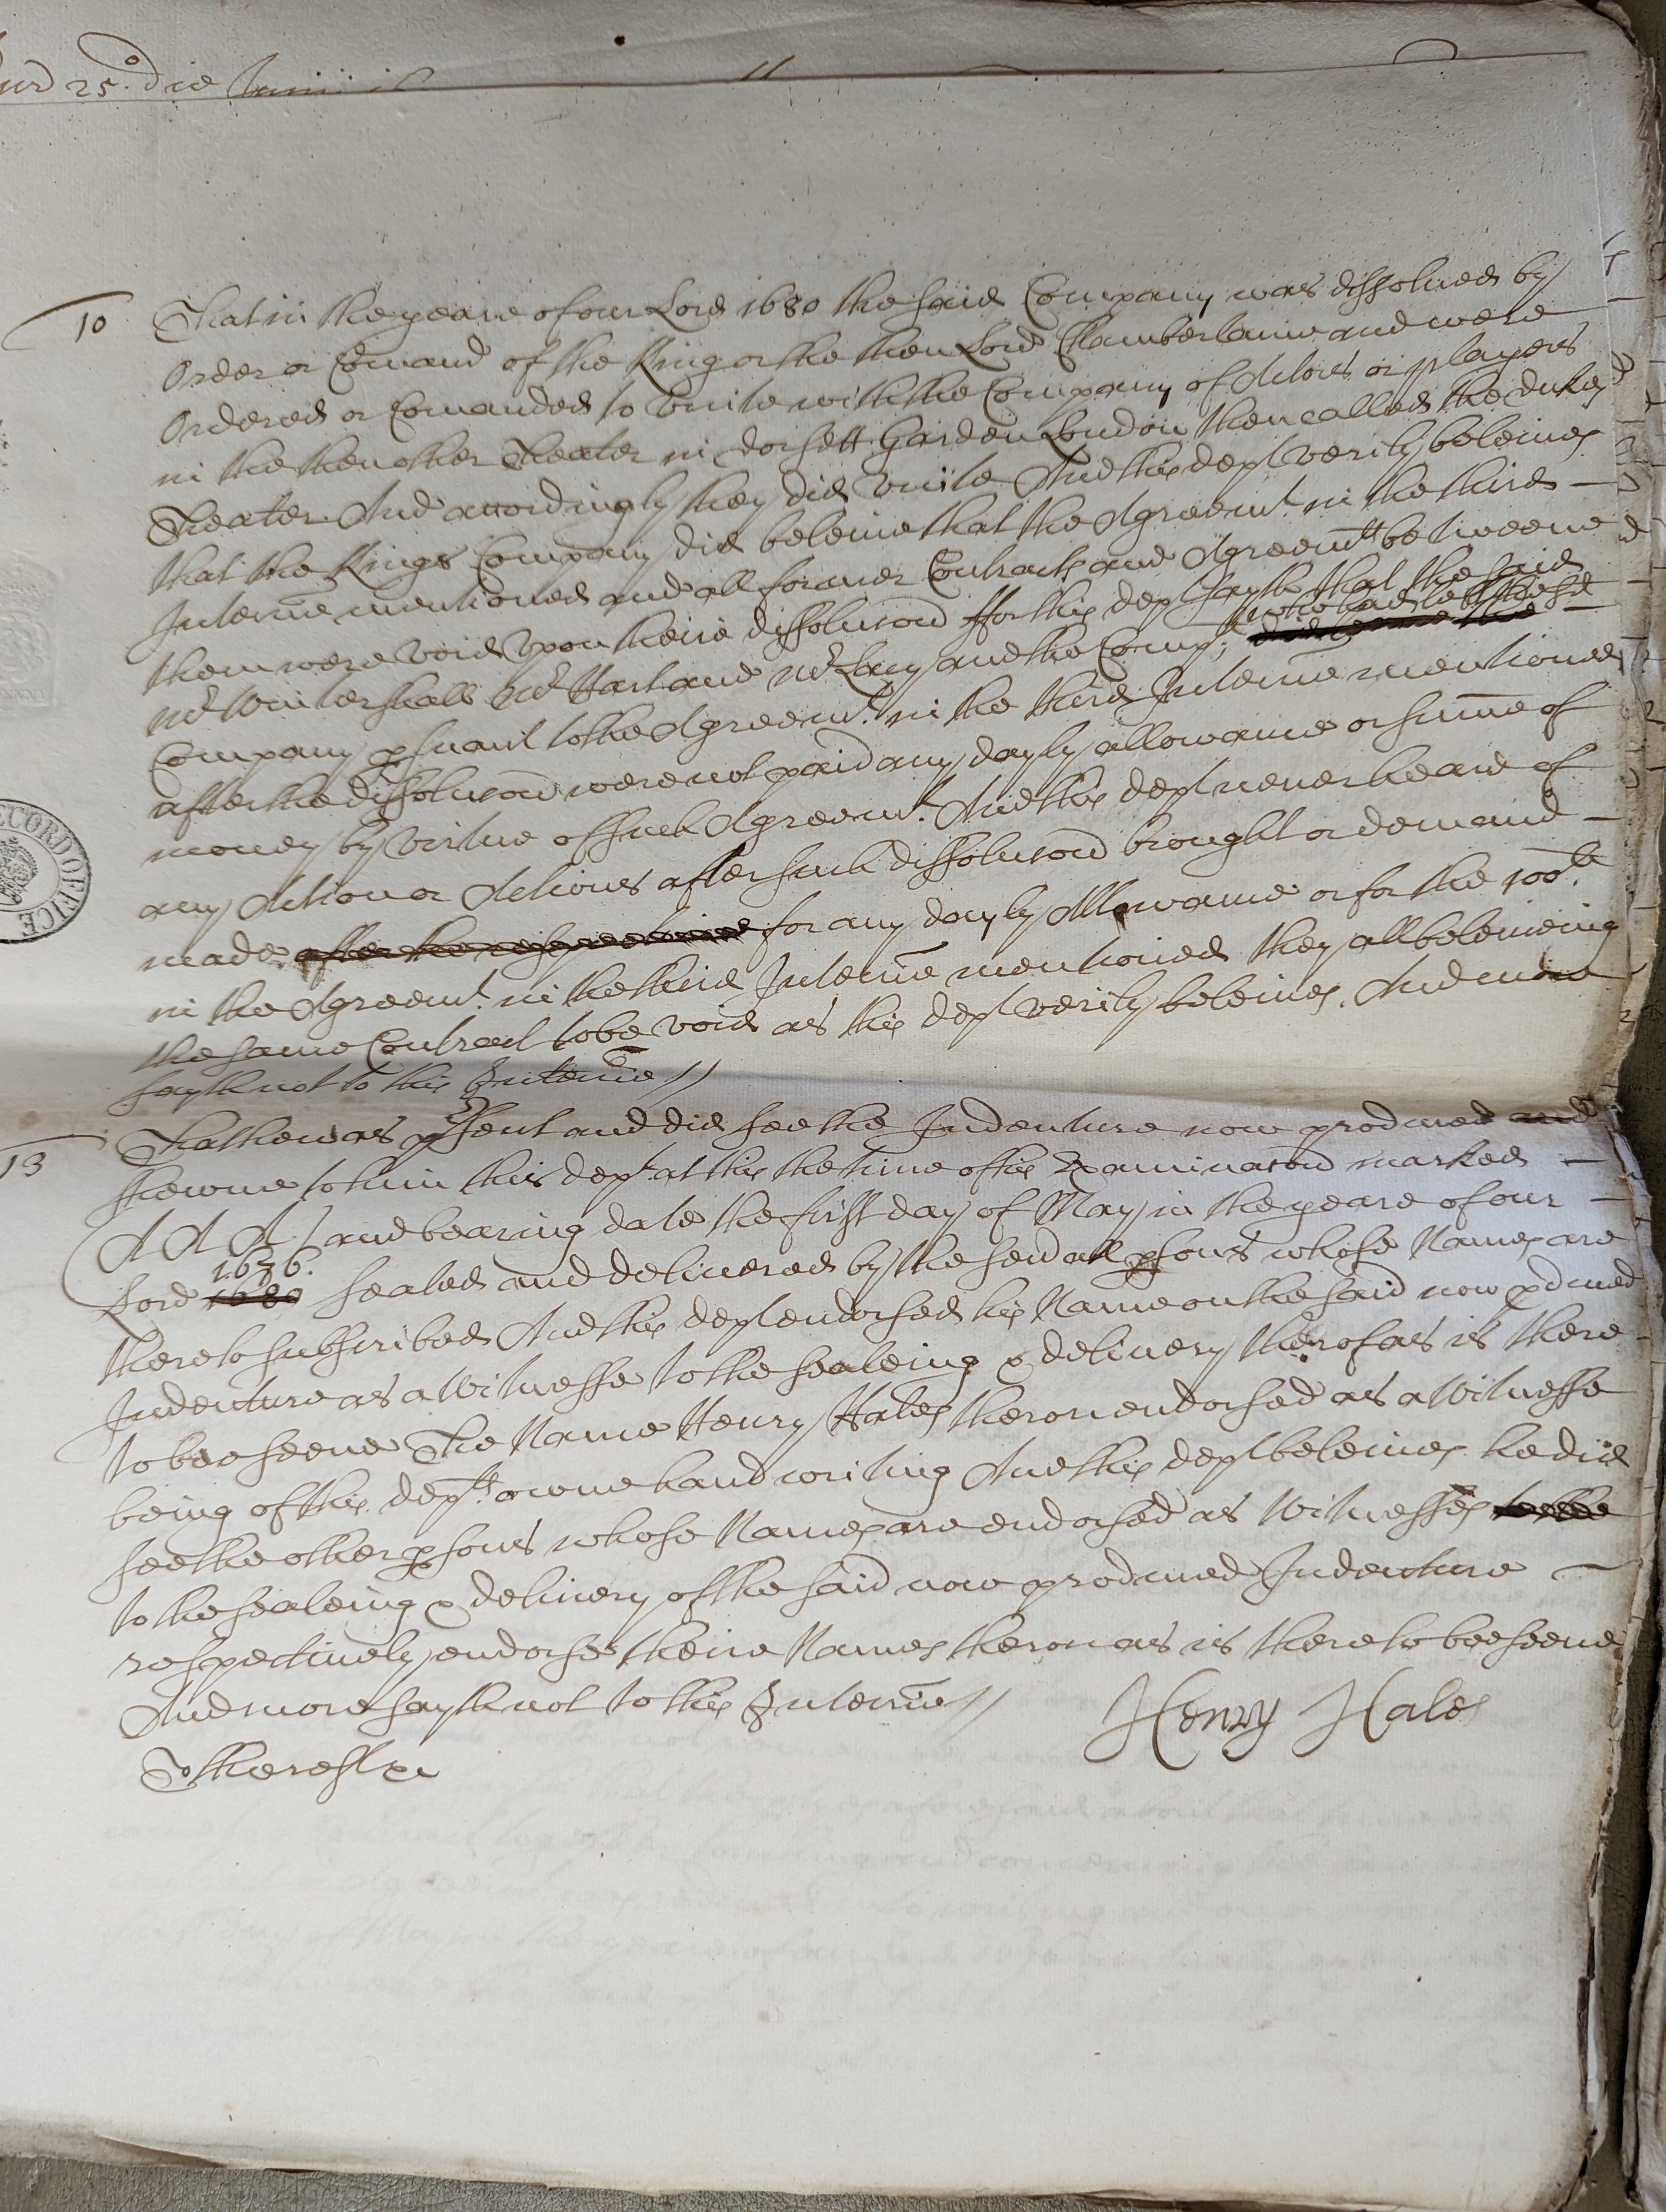 25o. die Junii
10 That in the yeare of our Lord 1680 the said Company was dissolued by
Order or Comand of the King or the then Lord Chamberlaine and were
Ordered or Comanded to vnite with the Company of Actors or players
in the then other Theater in Dorsett Garden London then called the Dukes
Theater And accordingly they did vnite And this dept verily beleiues
that the Kings Company did beleiue that the Agreemt. in the third
Interrie mentioned and all former Contracts and Agreemts betweene
them were void vpon theire dissolucon ffor this dept sayth that the said
who had left the sd
Mr Wintershall Mr Hart and Mr Lacy and the Comp:
Company psuant to the Agreemt. in the third Interrie mentioned
after the dissolucon were not paid any dayly allowance or summe of
money by virtue of such Agreemt. And this dept neuer heard of
any Action or Actions after such dissolucon brought or demand
made after the for any dayly Allowance or for the 100li.
in the Agreemt. in the third Interrie mentioned they all beleiueing
the same Contract to be void as this dept verily beleiues. And more
sayth not to this Interrie //
13 That he was psent and did see the Indenture now produced and
shewne to him this dept. at this the time of his Examinacon marked
A A A / and bearing date the first day of May in the yeare of our
1676.
Lord 1680 sealed and deliuered by the seuall psons whose Names are
thereto subscribed And this dept endorsed his Name on the said now pduced
Indenture as a Witnesse to the sealeing & deliuery therof as is there
to bee seene The Name Henry Hales theron endorsed as a Witnesse
being of this depts. owne handwriting And this dept beleiues he did
see the other psons whose Names are endorsed as Witnesses to the
to the sealeing & deliuery of the said now produced Indenture
respectiuely endorse theire Names theron as is there to bee seene
And more sayth not to this Interrie //
Henry Hales
To the rest &c
RECORD OFFICE